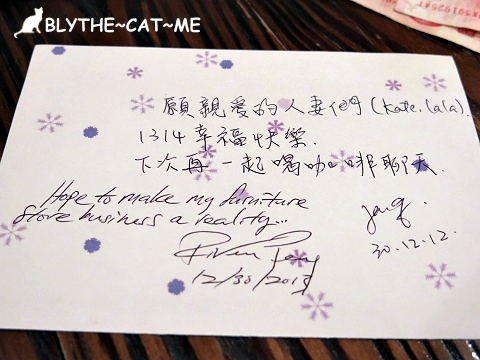 BLYTHE~CAT~ME
願親愛的人妻們(Kate.Lala)
1314幸福快樂.
下次再一起喝咖啡聊天
Hope to make my furniture
store business a reality...
30.12.12.